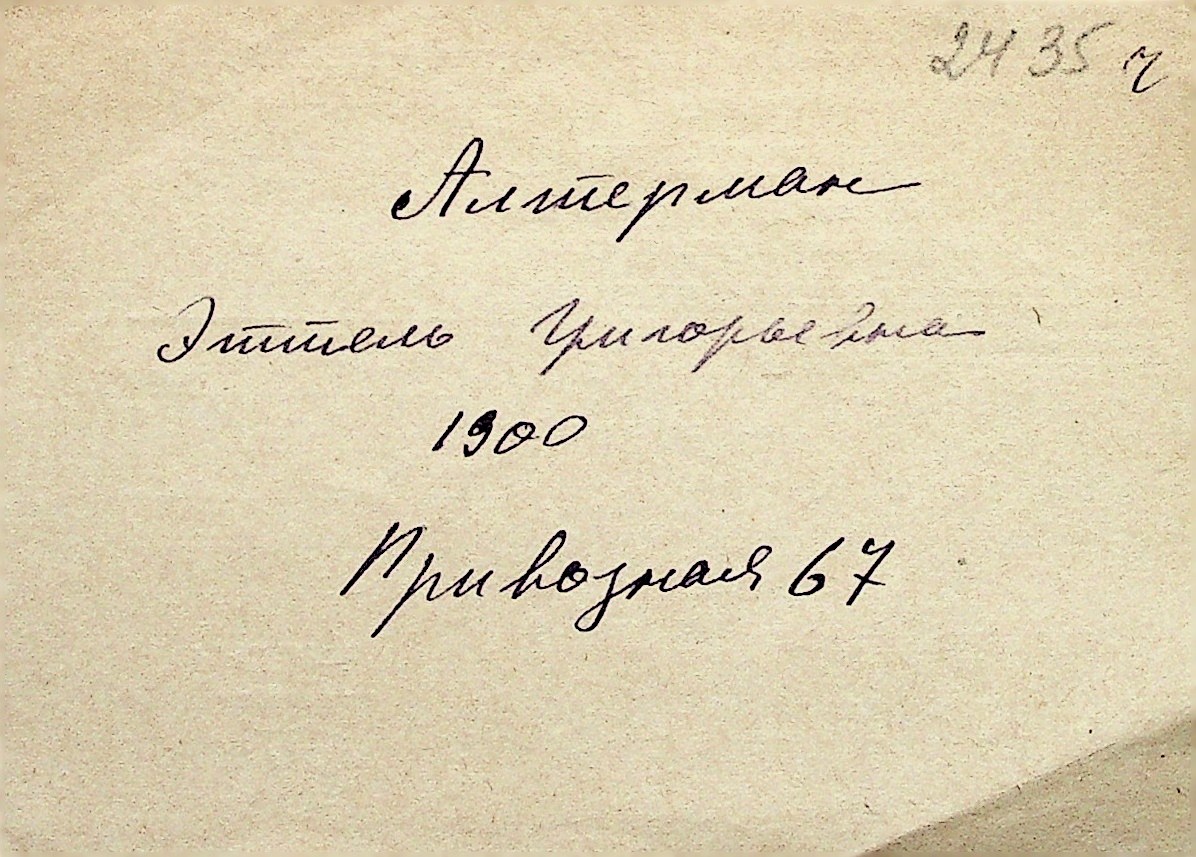 2435 ч
Алтерман
Эттель Григорьевна
1900
Привозная 67